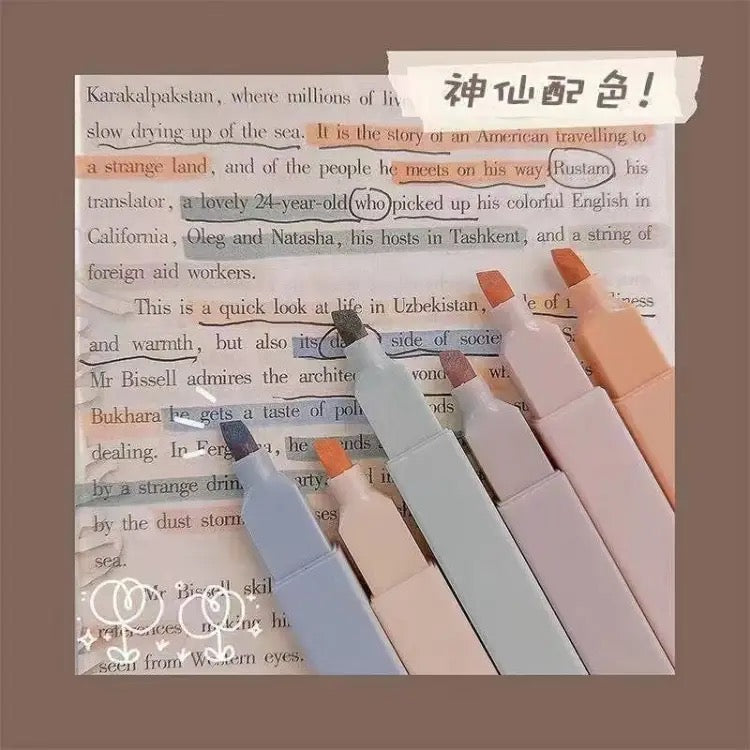 神仙配色!
Karakalpakstan, where millions of
slow drying up of the sea. It is the story of an American travelling to
a strange land, and of the people he meets on his way Rustam, his
translator, a lovely 24-year-old who picked up his colorful English in
California, Oleg and Natasha, his hosts in Tashkent, and a string of
foreign aid workers.
This is a quick look at life in Uzbekistan, of
and warmth, but also its side of
Mr Bissell admires the
Bukhara he gets a taste of
dealing. In he
by a strange
by the dust
sea.
Mr Bissell
references, making
seen from Western eyes.